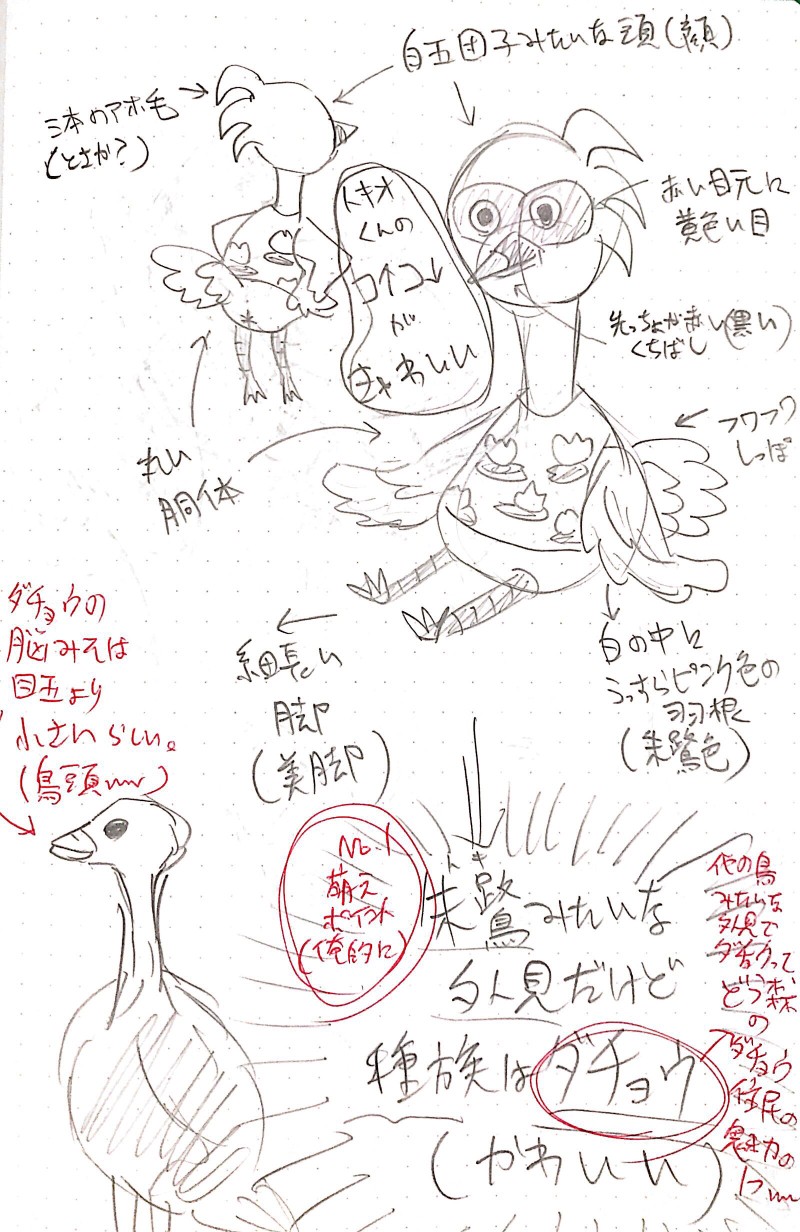 白玉団子みたいな頭(顔)
三本のアホ毛
(とさか?)
トキオ
くんの
ココ↓
が
きゃわいい
赤い目元に
黄色い目
先っちょが赤い(黒い)
くちばし
フワフワ
しっぽ
丸い
胴体
ダチョウの
脳みそは
目玉より
小さいらしい。
(鳥頭www)
細長い
脚
(美脚)
白の中に
うっすらピンク色の
羽根
(朱鷺色)
No.1
萌え
ポイント
(俺的に)
トキ
朱鷺みたいな
外見だけど
種族はダチョウ
(かわいい)
他の鳥
みたいな
外見で
ダチョウって
どう森
の
ダチョウ
住民の
魅力の
1つww